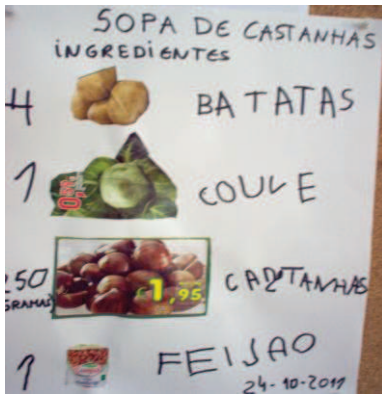 SOPA DE CASTANHAS
INGREDIENTES
4 BATATAS
1 COUVE
250 GRAMAS CASTANHAS
€1,95
1 FEIJAO
24-10-2011